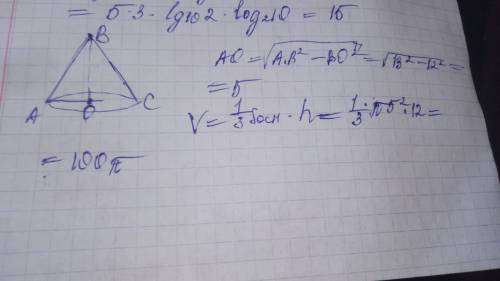 = 5·3·lg2·log₂10 = 15
B
AO = √(AB² − BO²) = √(13² − 12²) =
= 5
A O C
V = 1/3 Sосн · h = 1/3 · π5² · 12 =
= 100π